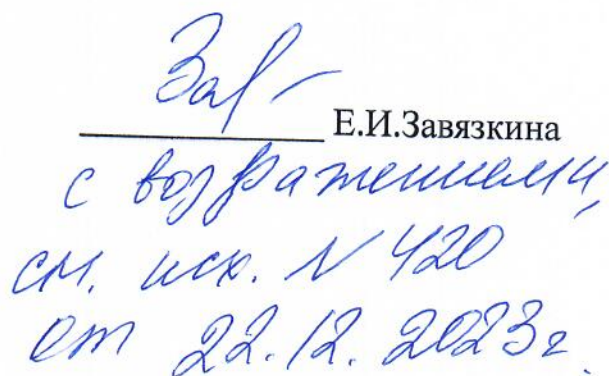 Зав
Е.И.Завязкина
с возражениями,
см. исх. N 420
от 22.12.2023г.